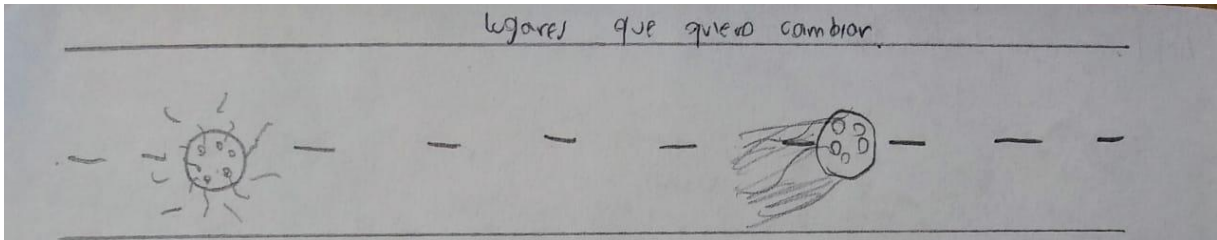 lugares que quiero cambiar.